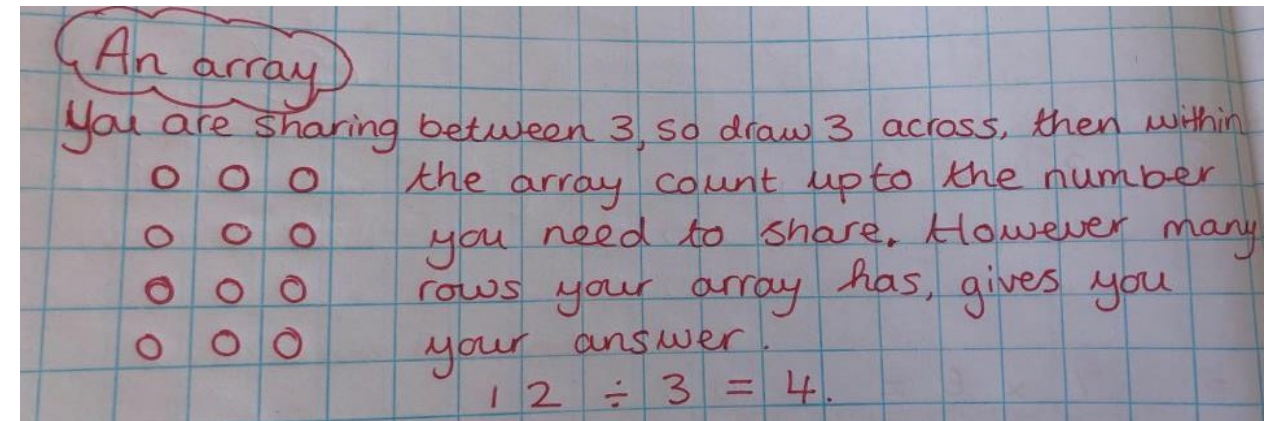 An array
You are sharing between 3, so draw 3 across, then within
the array count upto the number
you need to share. However many
rows your array has, gives you
your answer.
12 ÷ 3 = 4.